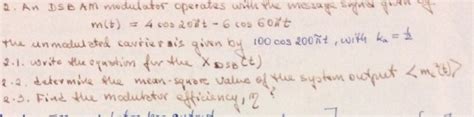 2. An DSB AM modulator operates with the message signal given by
m(t) = 4 cos 20πt - 6 cos 60πt
the unmodulated carrier is given by 100 cos 200πt, with ka = 1/2
2.1. write the equation for the X DSB(t)
2.2. determine the mean-square value of the system output <m²(t)>
2.3. Find the modulator efficiency, η